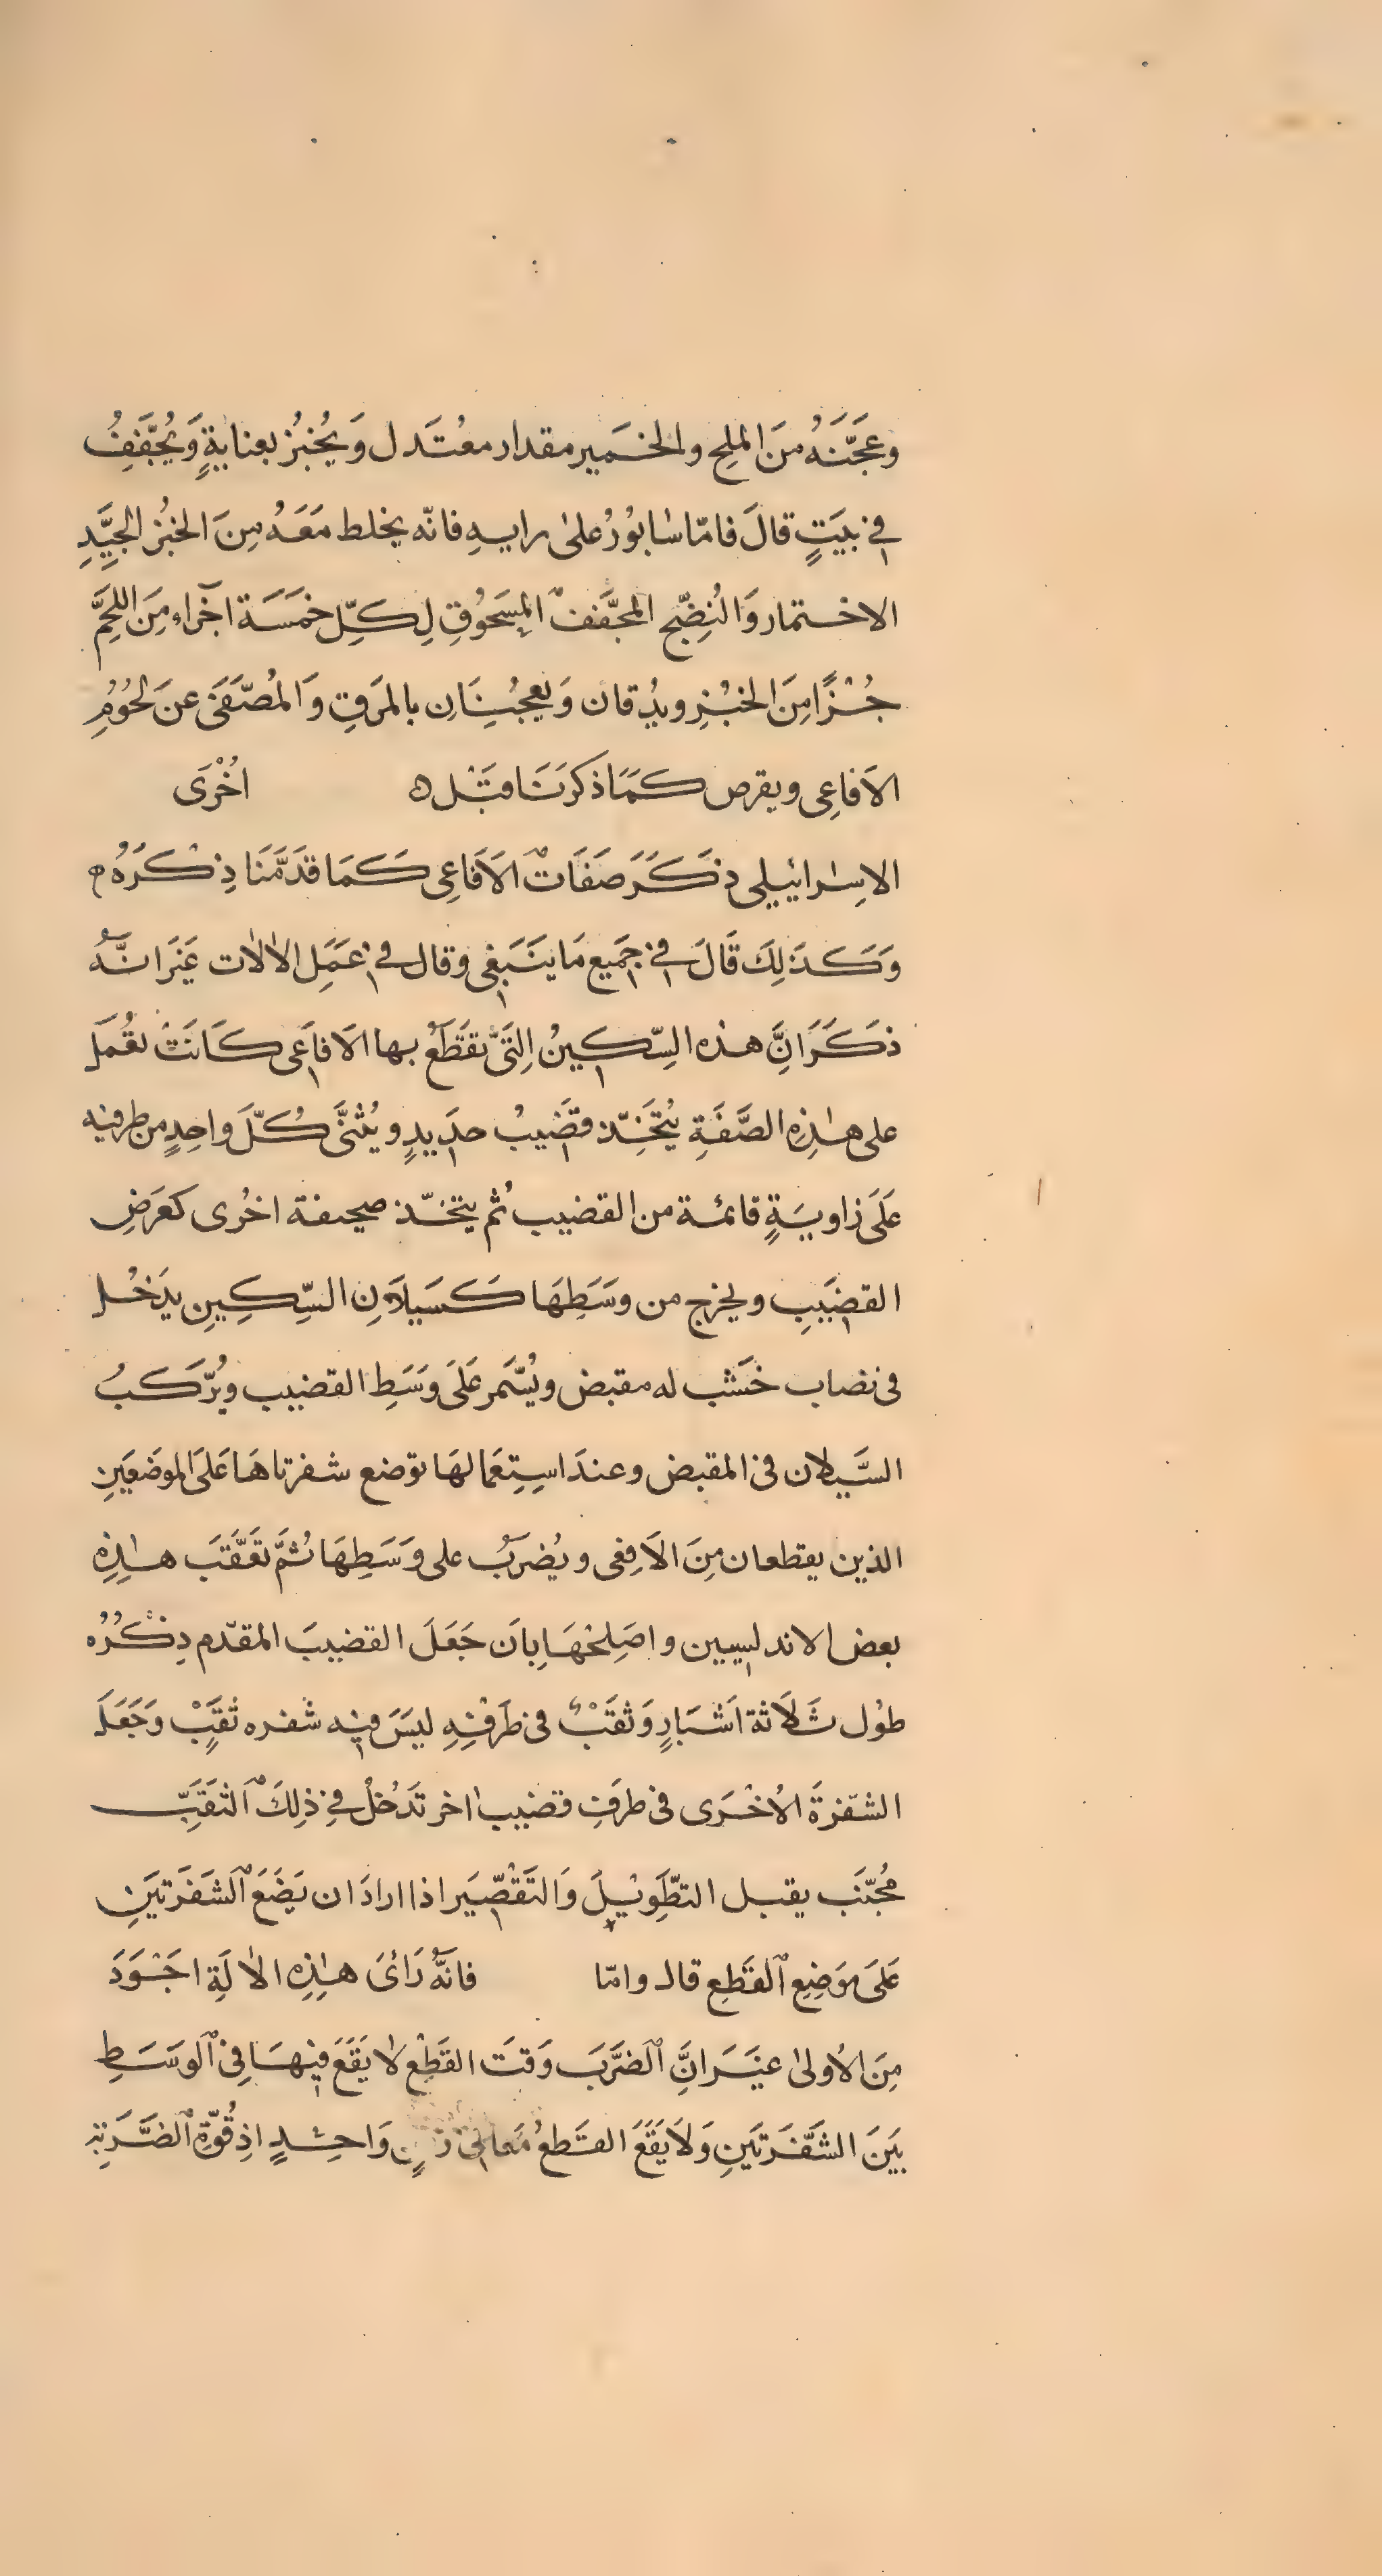 وعَجَّنَهُ منَ الملِحِ والخمَير مقدار معُتَدل وَيُخبَزُ بعنايةٍ وَيُجَفَفِفُ
في بيَتٍ قالَ فامّا سٰابوُرُ علىٰ رايهِ فانّه يخلط مَعَهُ مِنَ الخبُز الجيَّدِ
الاختمار وَالنُضِجّ المجفَّففْ المِسَحوُقِ لِكلِّ خمَسَة اجَزاء مِنَ اللحَمَّ
جُزًا مِنَ الخبُزِ ويدُقان وَيعجُنِاَنِ بالمرَقِ وَالمُصّفَىَ عنَ لحُوُمُِ
الاَفاعِى ويقرص كمَاَ ذكرَنَا قبَل ه اخُرْىَ
الاِسرايئيلى ذكَرَ صَفَاتْ الاَفَاعِى كَمَا قدَمَّنَا ذِكرَهُ م
وَكَذَلِكَ قَالَ في جَميع مَا ينَبَغى وقال في عَمَلِ الاٰلات غيَرَ انَّهُ
ذكَرَ انَِّ هذه السِّكينُ الِتَىّ تقَطَعُ بها الاَفاعَى كاَنَتْ تعُمَل
على هٰذِهِ الصَّفَةِ يُتخَِذّ قضَيبُ حدَيدٍ ويُثنَّى كُلّ واحِدٍ من طرفيه
عَلَى زاويَةٍ قائمة من القضيب ثُم يتخذّ صحيفة اخرُى كعَرَضِ
القضَيبِ ويخرج من وسَطِهَا كَسَيلاَنِ السِّكِينِ يدَخُل
فى نصاب خشَب له مقبض ويُسَّمر عَلَى وسَطِ القضيب ويُرّكَبُ
السَّيلان فى المقبض وعندَ استِعَمالهَا توضع شفرتاهَا عَلىَ الموضَعيَنِ
الذين يقطعان مِنَ الاَفِعى ويُضرَبُ على وَسَطِهَا ثمُّ تعَقّقبَ هٰذِهِ
بعض الاندلسيين واصَلِحَهَا بِاَن جَعَلَ القضيبَ المقدّم ذِكرُهُ
طوُل ثَلاَثة اَشبَارٍ وَثقَبْ فى طرَفهِ ليسَ فيه شفره ثقَبِْ وَجَعَلَ
الشفّرةَ الاُخرَى فى طرفَِ قضيب اخر تدَخُلُ فيِ ذلِكَ الثقَبِّ
مُجنَّب يقبل التطّوَيلَ وَالتَقصّيرَ اذا ارادَ ان يَضَعَ الشفَرَتيَنِ
عَلىَ موَضِعِ القَطعِ قال وامّا فانَّهُ رَائَ هٰذِهِ الاٰلَةِ اجَوَدَ
مِنَ الاُولىٰ غيَرَ انَِّ الضرَّبَ وَقتَ القَطع لاٰ يَقَعَ فيهَا فىِ الوسَطِ
بيَنَ الشفَّرَتيَنِ وَلاَ يَقَعَ القَطعُ مَعا في زمنٍ وَاحِدٍ اذِ قُوّةِ الضَرَبَة